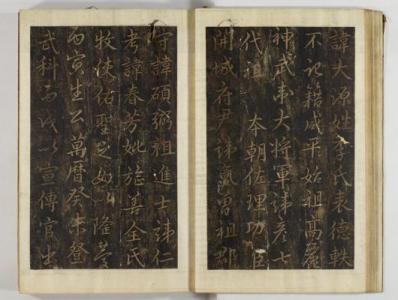 諱大源姓李氏表德軼
不記籍咸平始祖高麗
神武衛大將軍諱彦七
代祖 本朝佐理功臣
開城府尹諱 曾祖郡
守諱碩 祖進士諱仁
考諱春芳妣旌善全氏
牧使佑聖之女 隆慶
丙寅生公萬曆癸未登
武科丙戌以宣傳官出